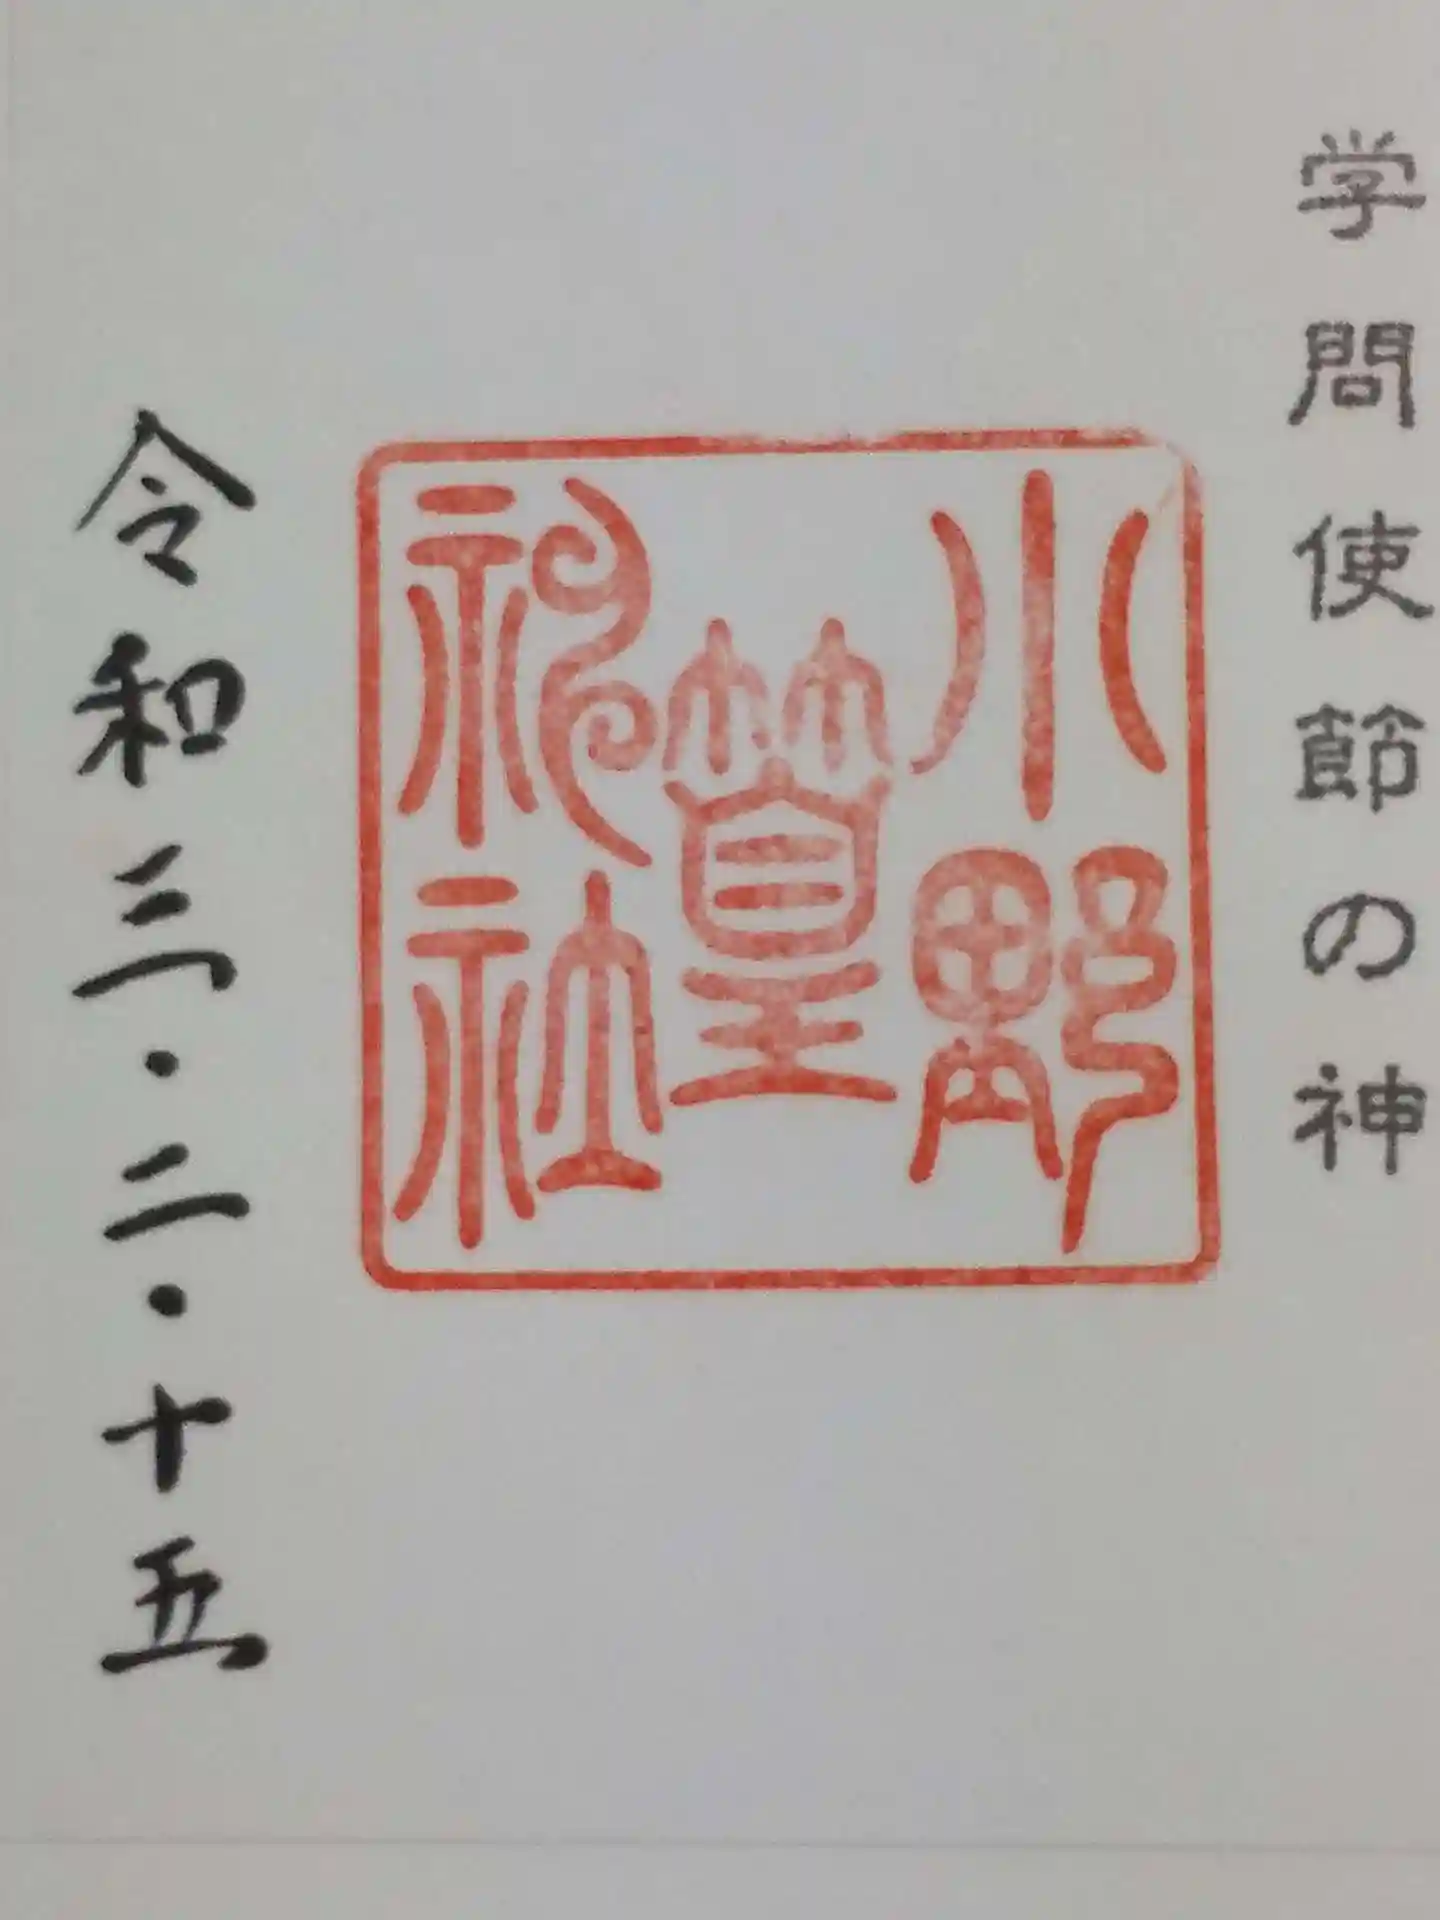 学問使節の神
小野
篁
神社
令和三・二・十五